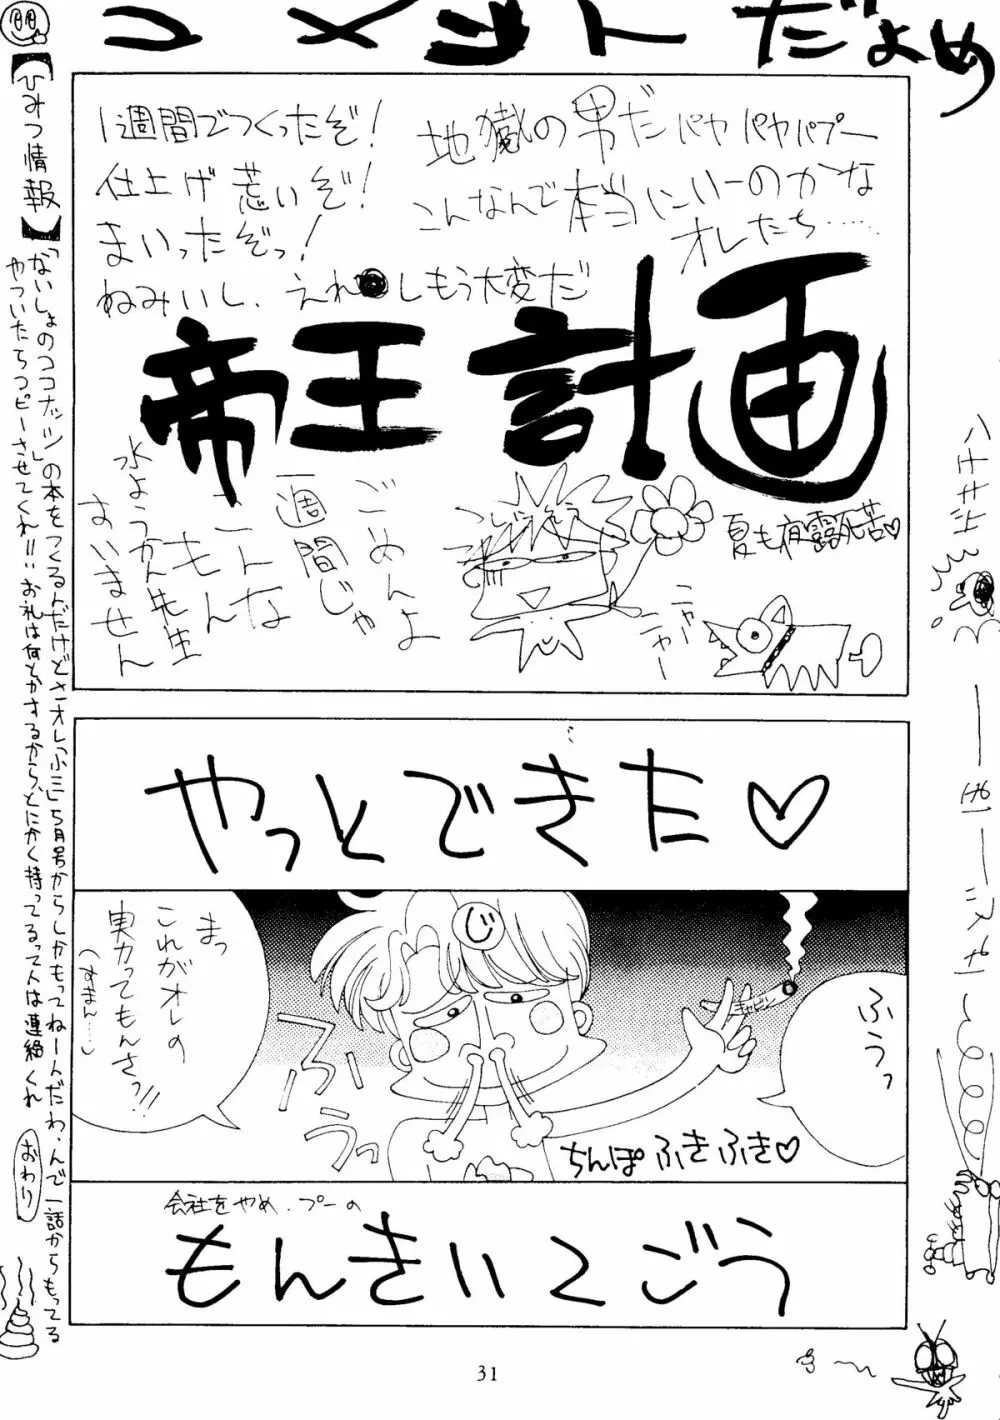 コメントだよめ
1週間でつくったぞ!
仕上げ荒いぞ!
まいったぞっ!
ねみいし、えれ しもう大変だ
地獄の男だパヤパヤパプー
こんなんで本当にいーのかな
オレたち……
帝王計画
ごめんよ
一週間じゃ
こんな
もん
水ようかん先生
すいません
夏も夜露死苦♡
ニャー
ニャー
やっとできた♡
ふうっ
じ
キャビン
まっ
これがオレの
実力ってもんさっ!!
(すまん…)
ふぅーっ
ちんぽふきふき♡
会社をやめ、プーの
もんきいくごう
【ひみつ情報】
「ないしょのココナッツ」の本をつくるんだけどさ、オレ「小三」5月号からしかもってねーんだわ、んで一話からもってる
やついたらコピーさせてくれ!!お礼は何とかするから、とにかく持ってるって人は連絡くれ
おわり
31